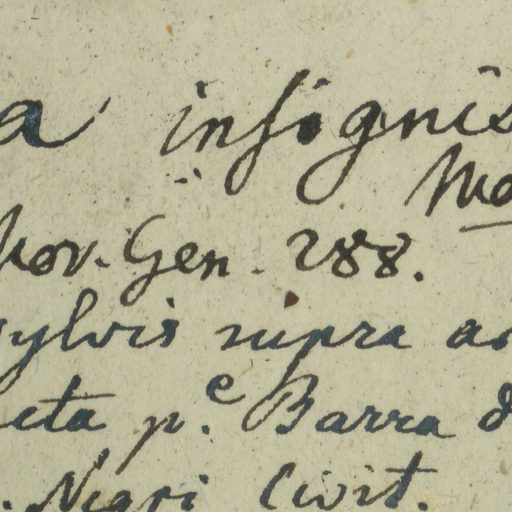 a insignis
Ma
Nov. Gen. 288.
sylvis supra ar
ecta p.e Barra d
. Negri Civit.